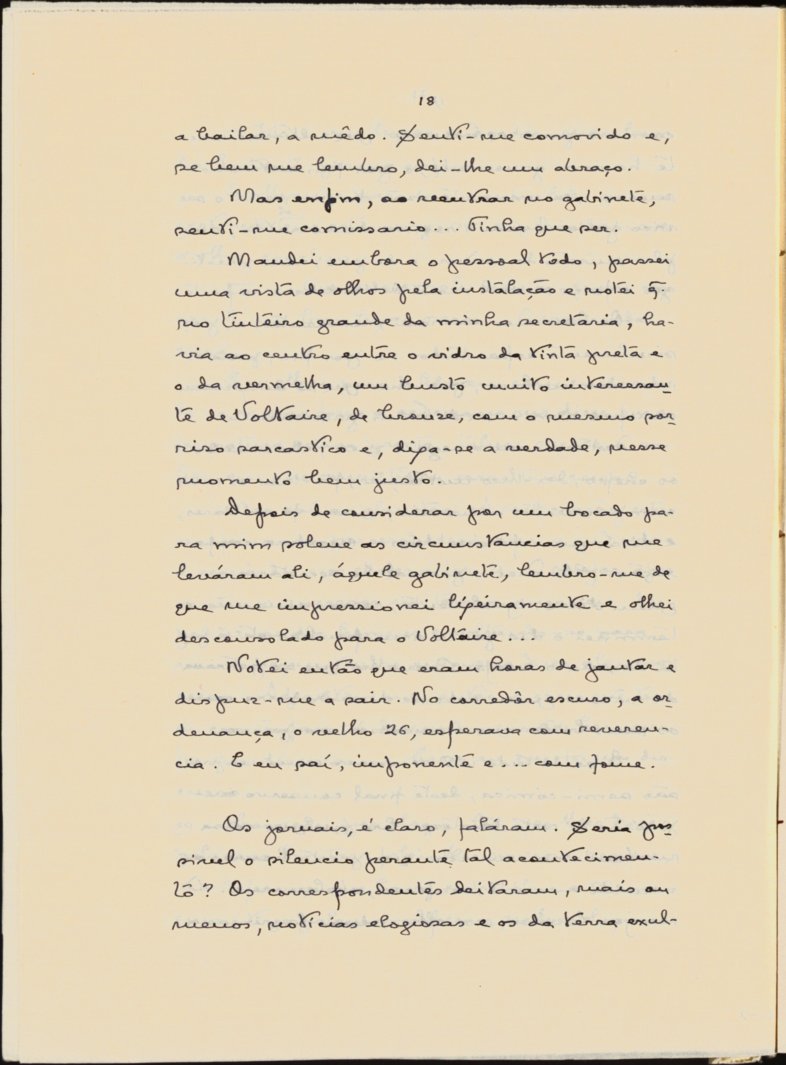 18
a bailar, a mêdo. Senti-me comovido e,
se bem me lembro, dei-lhe um abraço.
Mas enfim, ao reentrar no gabinete,
senti-me comissario... Tinha que ser.
Mandei embora o pessoal todo, passei
uma vista de olhos pela instalação e notei q̃.
no tinteiro grande da minha secretaria, ha-
via ao centro entre o vidro da tinta preta e
o da vermelha, um busto muito interessan-
te de Voltaire, de bronze, com o mesmo sor-
riso sarcastico e, diga-se a verdade, nesse
momento bem justo.
Depois de considerar por um bocado pa-
ra mim solene as circumstancias que me
leváram ali, áquele gabinete, lembro-me de
que me impressionei ligeiramente e olhei
desconsolado para o Voltaire...
Notei então que eram horas de jantar e
dispuz-me a sair. No corredôr escuro, a or-
denança, o velho 26, esperava com reveren-
cia. E eu saí, imponente e... com fome.
Os jornais, é claro, faláram. Seria pos-
sivel o silencio perante tal acontecimen-
to? Os correspondentes deitaram, mais ou
menos, noticias elogiosas e os da terra exul-